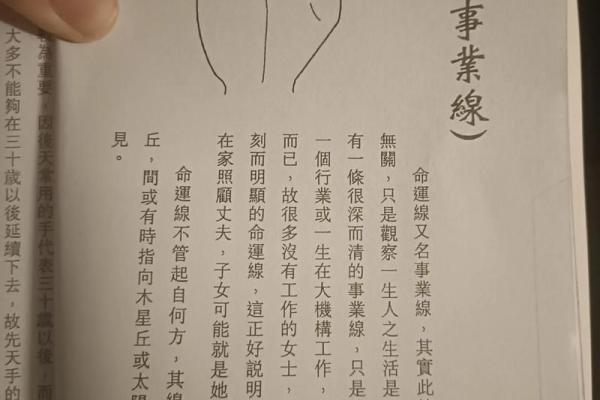 事業線）
命運線又名事業線，其實此
無關，只是觀察一生人之生活是
有一條很深而清的事業線，只是
一個行業或一生在大機構工作，
而已，故很多沒有工作的女士，
刻而明顯的命運線，這正好說明
在家照顧丈夫，子女可能就是她
命運線不管起自何方，其線
丘，間或有時指向木星丘或太陽
見。
為重要，因後天常用的手代表三十歲以後，而
大多不能夠在三十歲以後延續下去，故先天手的